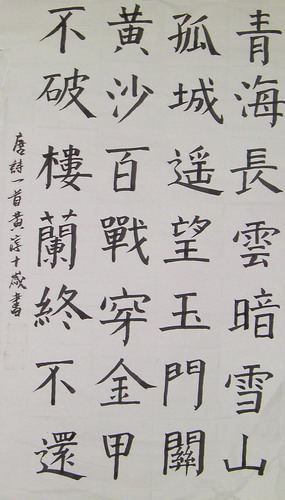 青海長雲暗雪山
孤城遥望玉門關
黄沙百戰穿金甲
不破樓蘭終不還
唐詩一首黄淳十歲書